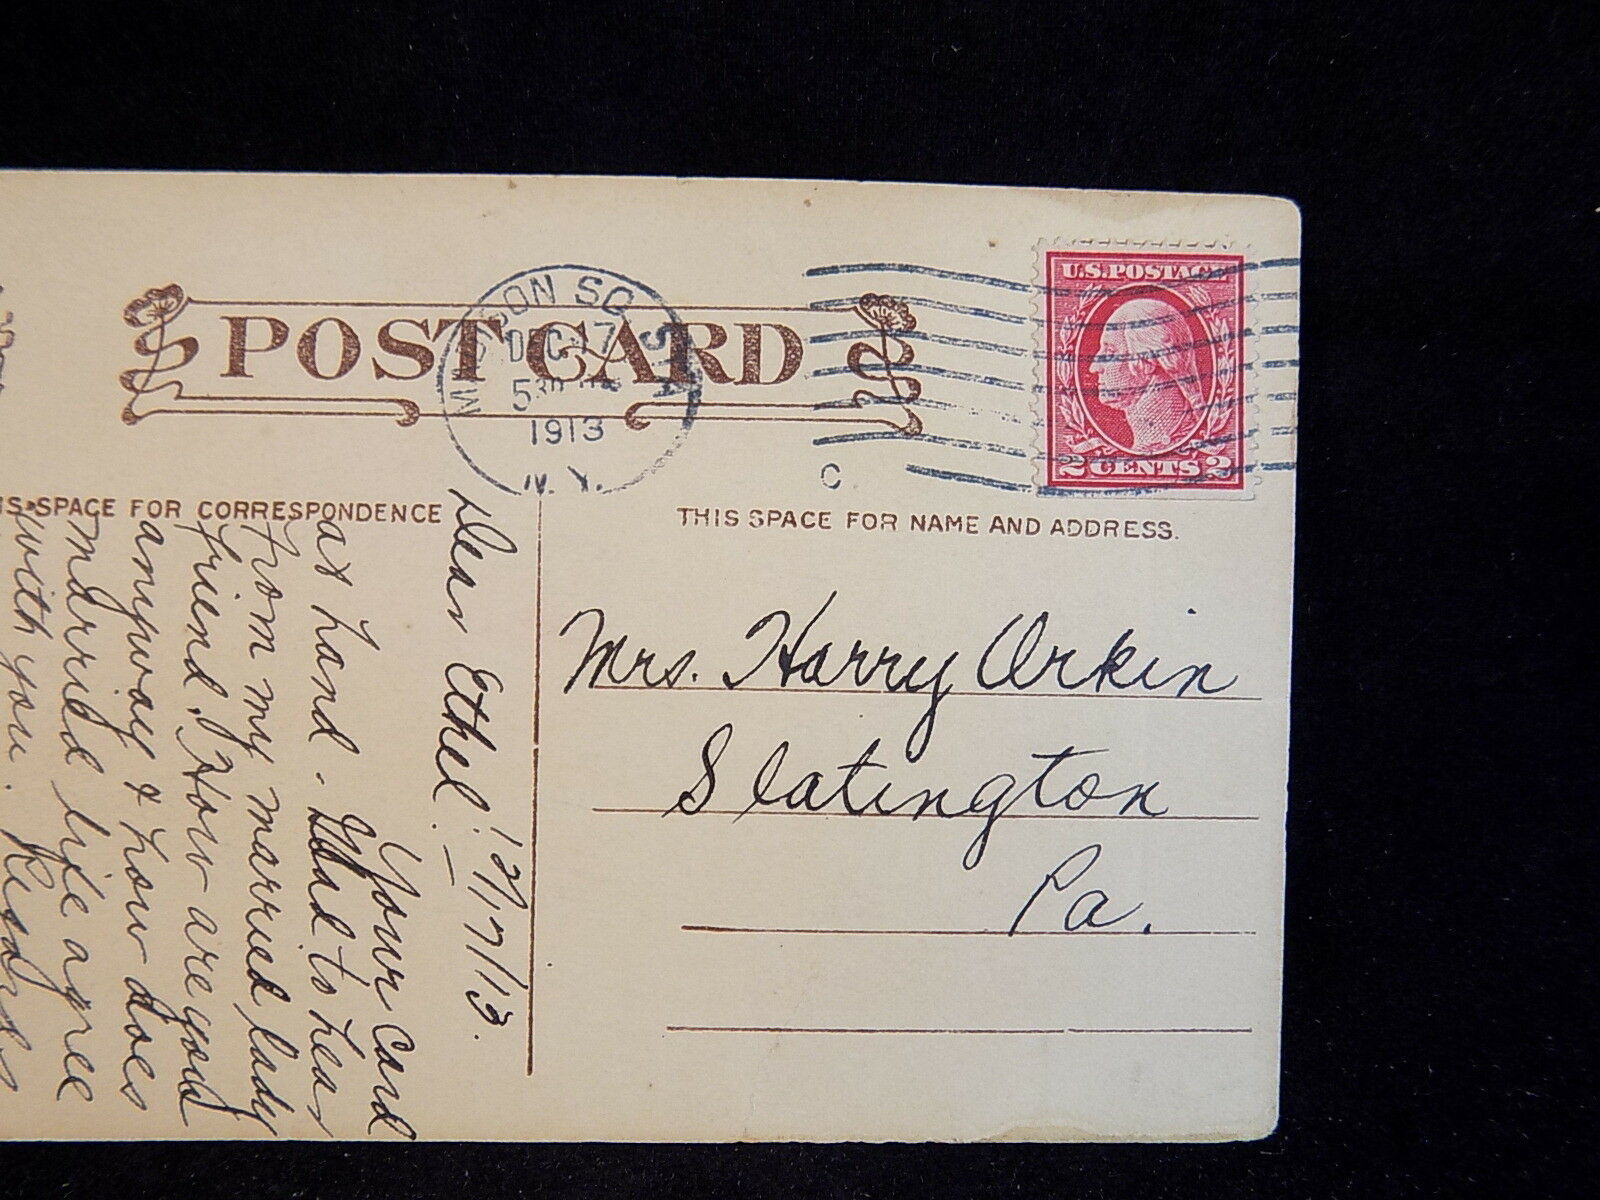 POST CARD
MADISON SQ. STA.
DEC 17
530 PM
1913
N. Y.
C
U.S. POSTAGE
2 CENTS 2
THIS SPACE FOR CORRESPONDENCE
THIS SPACE FOR NAME AND ADDRESS.
Mrs. Harry Orkin
Slatington
Pa.
Dear Ethel:— 12/17/13.
Your Card
at hand - Glad to hear
from my married lady
friend. How are you
anyway & how does
married life agree
with you.